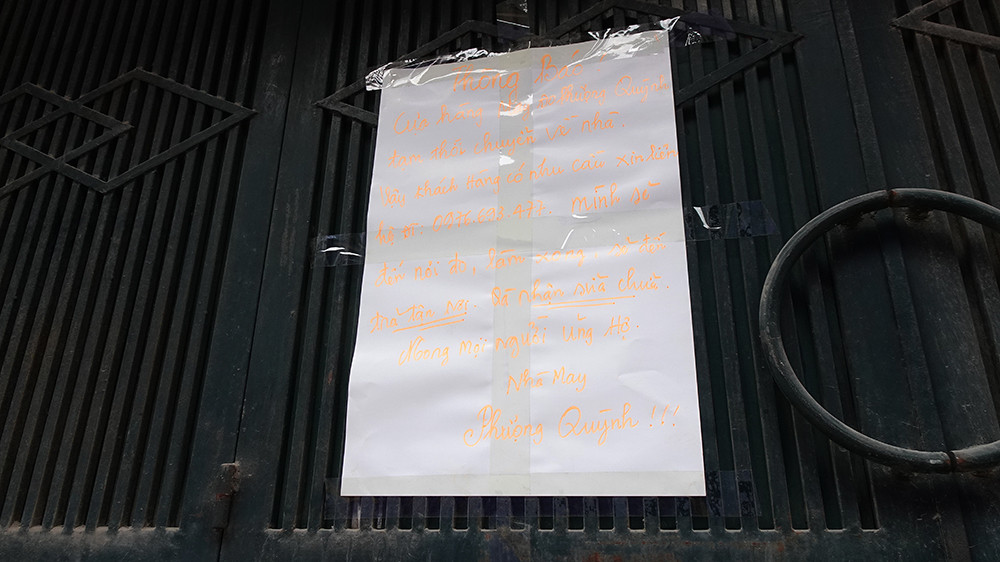 Thông Báo
Cửa hàng may đo Phượng Quỳnh
tạm thời chuyển về nhà.
Quý khách hàng có nhu cầu xin liên
hệ ĐT. 0976.693.477. mình sẽ
đến nơi đo, làm xong sẽ đến
trả tận nơi. Sẽ nhận sửa chữa.
Mong mọi người Ủng Hộ.
Nhà May
Phượng Quỳnh !!!